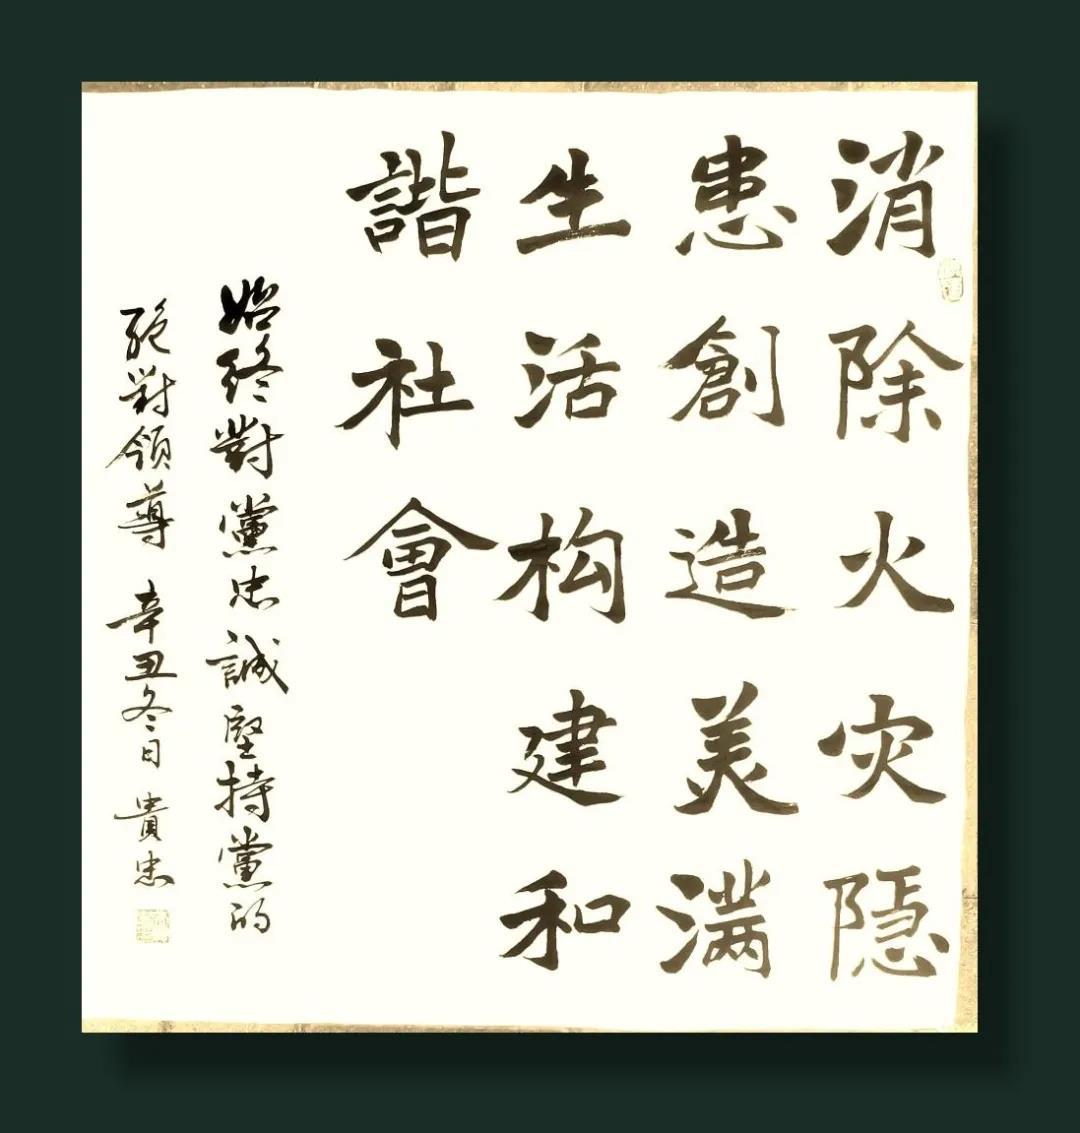 消除火灾隐
患創造美满
生活构建和
諧社會
始终對黨忠誠堅持黨的
絕對領導 辛丑冬日 貴忠